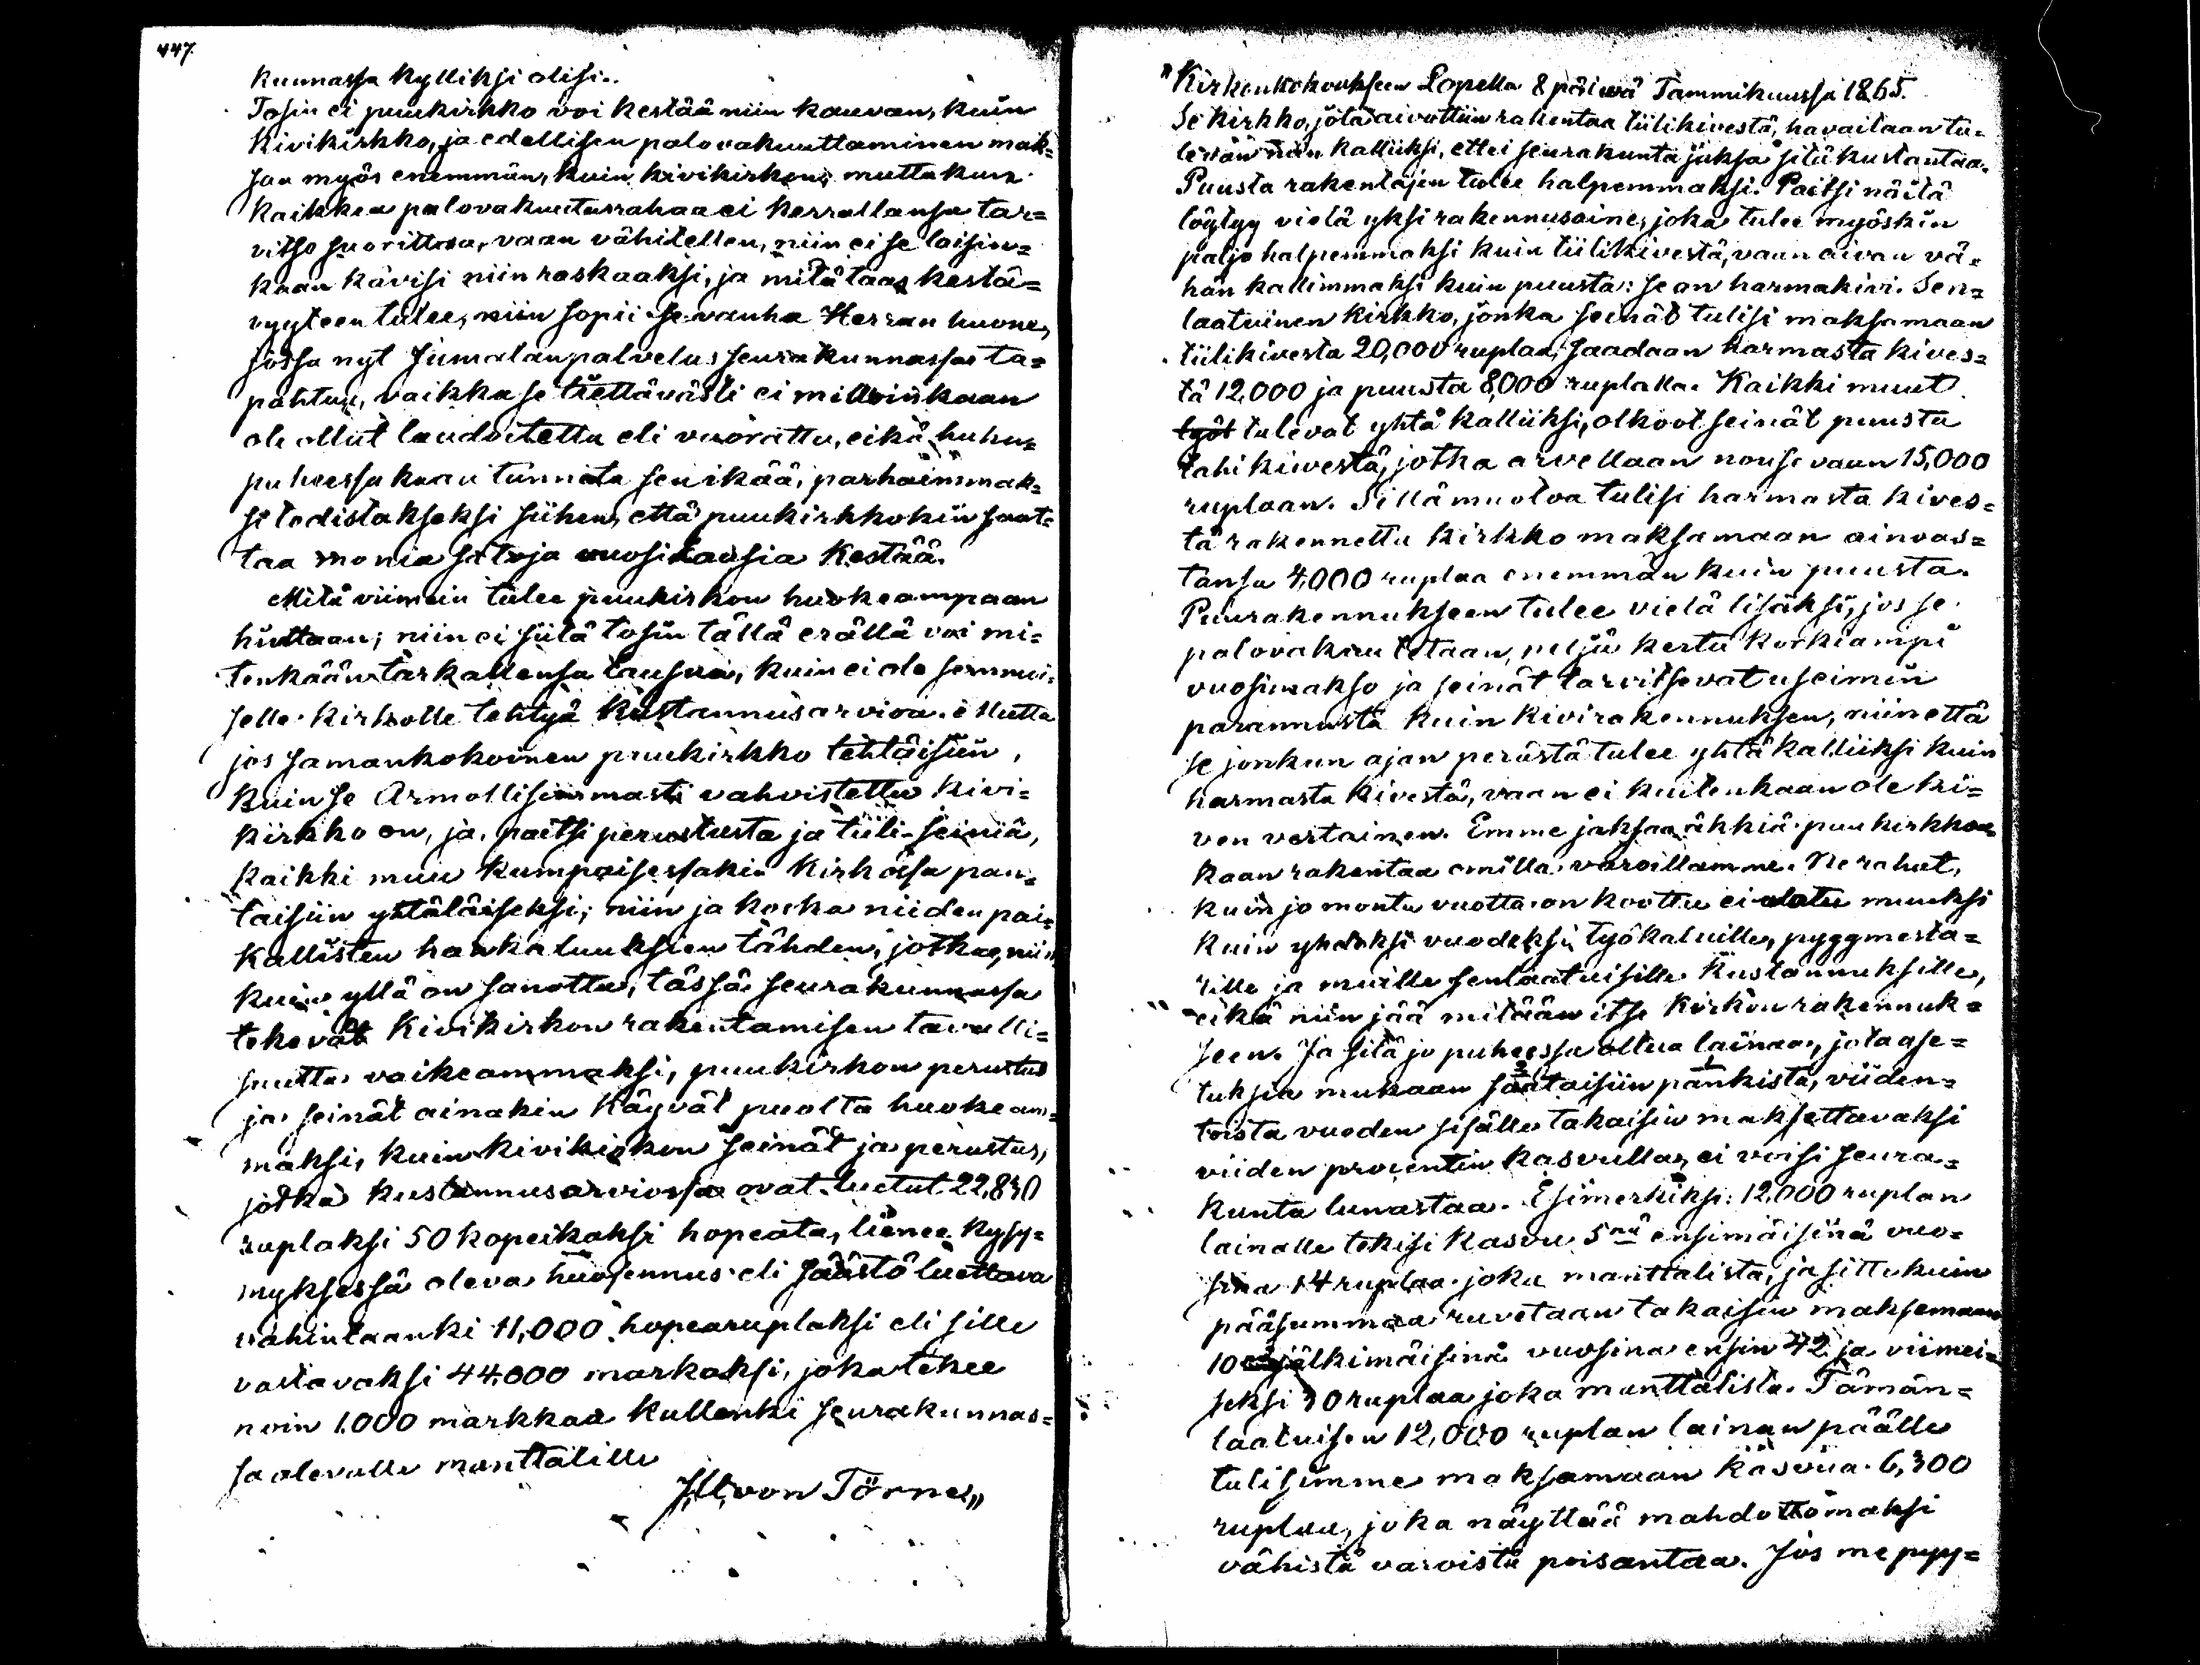 447.
kunnassa kylliksi olisi.
Tosin ei puukirkko voi kestää niin kauvan, kuin
kivikirkko, ja edellisen palovakuuttaminen mak=
saa myös enemmän, kuin kivikirkon; mutta kun
kaikkea palovakuutusrahaa ei kerrallansa tar=
vitse suorittaa, vaan vähitellen, niin ei se laisin=
kaan kävisi niin raskaaksi, ja mitä taas kestä=
vyyteen tulee, niin sopii se vanha Herran huone,
jossa nyt Jumalanpalvelus seurakunnassa ta=
pahtuu, vaikka se tiettävästi ei milloinkaan
ole ollut laudoitettu eli vuorattu, eikä huhu=
puheessakaan tunneta sen ikää, parhaimmak=
si todistakseksi siihen, että puukirkkokin saat=
taa monia satoja vuosikausia kestää.
Mitä viimein tulee puukirkon huokeampaan
hintaan; niin ei siitä tosin tällä erällä voi mi=
tenkään tarkallensa lausua, kuin ei ole semmoi=
selle kirkolle tehtyä kustannusarvioa. Mutta
jos samankokoinen puukirkko tehtäisiin,
kuin se Armollisimmasti vahvistettu kivi=
kirkko on, ja, paitsi perustusta ja tiili-seiniä,
kaikki muu kumpaisessakin kirkossa pan=
taisiin yhtäläiseksi; niin ja koska niiden pai=
kallisten hankaluuksien tähden, jotka, niin
kuin yllä on sanottu, tässä seurakunnassa
tekevät kivikirkon rakentamisen tavalli=
suutta vaikeammaksi, puukirkon perustus
ja seinät ainakin käyvät puolta huokeam=
maksi, kuin kivikirkon seinät ja perustus,
jotka kustannusarviossa ovat luetut 22,830
ruplaksi 50 kopeikaksi hopeata, lienee kysy=
myksessä oleva huojennus eli säästö luettava
vähintäänki 11,000 hopearuplaksi eli sille
vastavaksi 44,000 markaksi, joka tekee
noin 1.000 markkaa kullenki seurakunnas=
sa olevalle manttalille
von Törne„
"Kirkonkokoukseen Lopella 8 päivä Tammikuussa 1865.
Se kirkko, jota aivottiin rakentaa tiilikivestä, havaitaan tu=
levan niin kalliiksi, ettei seurakunta jaksa sitä kustantaa.
Puusta rakentajen tulee halpemmaksi. Paitsi näitä
löytyy vielä yksi rakennusaine, joka tulee myöskin
paljo halpemmaksi kuin tiilikivestä, vaan aivan vä=
hän kallimmaksi kuin puusta: se on harmakivi. Sen=
laatuinen kirkko, jonka seinät tulisi maksamaan
tiilikivesta 20,000 ruplaa, saadaan harmasta kives=
tä 12,000 ja puusta 8,000 ruplalla. Kaikki muut
työt tulevat yhtä kalliiksi, olkoot seinät puusta
tahi kivestä, jotka arvellaan nouse vaan 15,000
ruplaan. Sillä muotoa tulisi harmasta kives=
tä rakennettu kirkko maksamaan ainoas=
tansa 4,000 ruplaa enemmän kuin puusta.
Puurakennukseen tulee vielä lisäksi, jos se
palovakuutetaan, neljä kertaa korkiampi
vuosimakso ja seinät tarvitsevat useimin
parannusta kuin kivirakennuksen, niin että
se jonkun ajan perästä tulee yhtä kalliiksi kuin
harmasta kivestä, vaan ei kuitenkaan ole ki=
ven vertainen. Emme jaksaa äkkiä puukirkkoa
kaan rakentaa omilla varoillamme. Ne rahat,
kuin jo monta vuotta on koottu ei ulotu muuksi
kuin yhdeksi vuodeksi työkaluille, pyggmesta=
rille ja muille senlaatuisille kustannuksille,
eikä niin jää mitään itse kirkon rakennuk=
seen. Ja sitä jo puheessa oltua lainaa, jota ase=
tuksen mukaan saataisiin pankista, viiden=
toista vuoden sisälle takaisin maksettavaksi
viiden prosentin kasvulla, ei voisi seura=
kunta lunastaa. Esimerkiksi: 12,000 ruplan
lainalle tekisi kasvu 5nä ensimäisinä vuo=
sina 14 ruplaa joka manttalista, ja sitte kuin
pääsummaa ruvetaan takaisin maksemaan
10 jälkimäisinä vuosina ensin 42 ja viimei=
seksi 30 ruplaa joka manttalista. Tämän=
laatuisen 12,000 ruplan lainan päälle
tulisimme maksamaan kasvua 6,300
ruplaa, joka näyttää mahdottomaksi
vähistä varoista poisantaa. Jos me pyy=